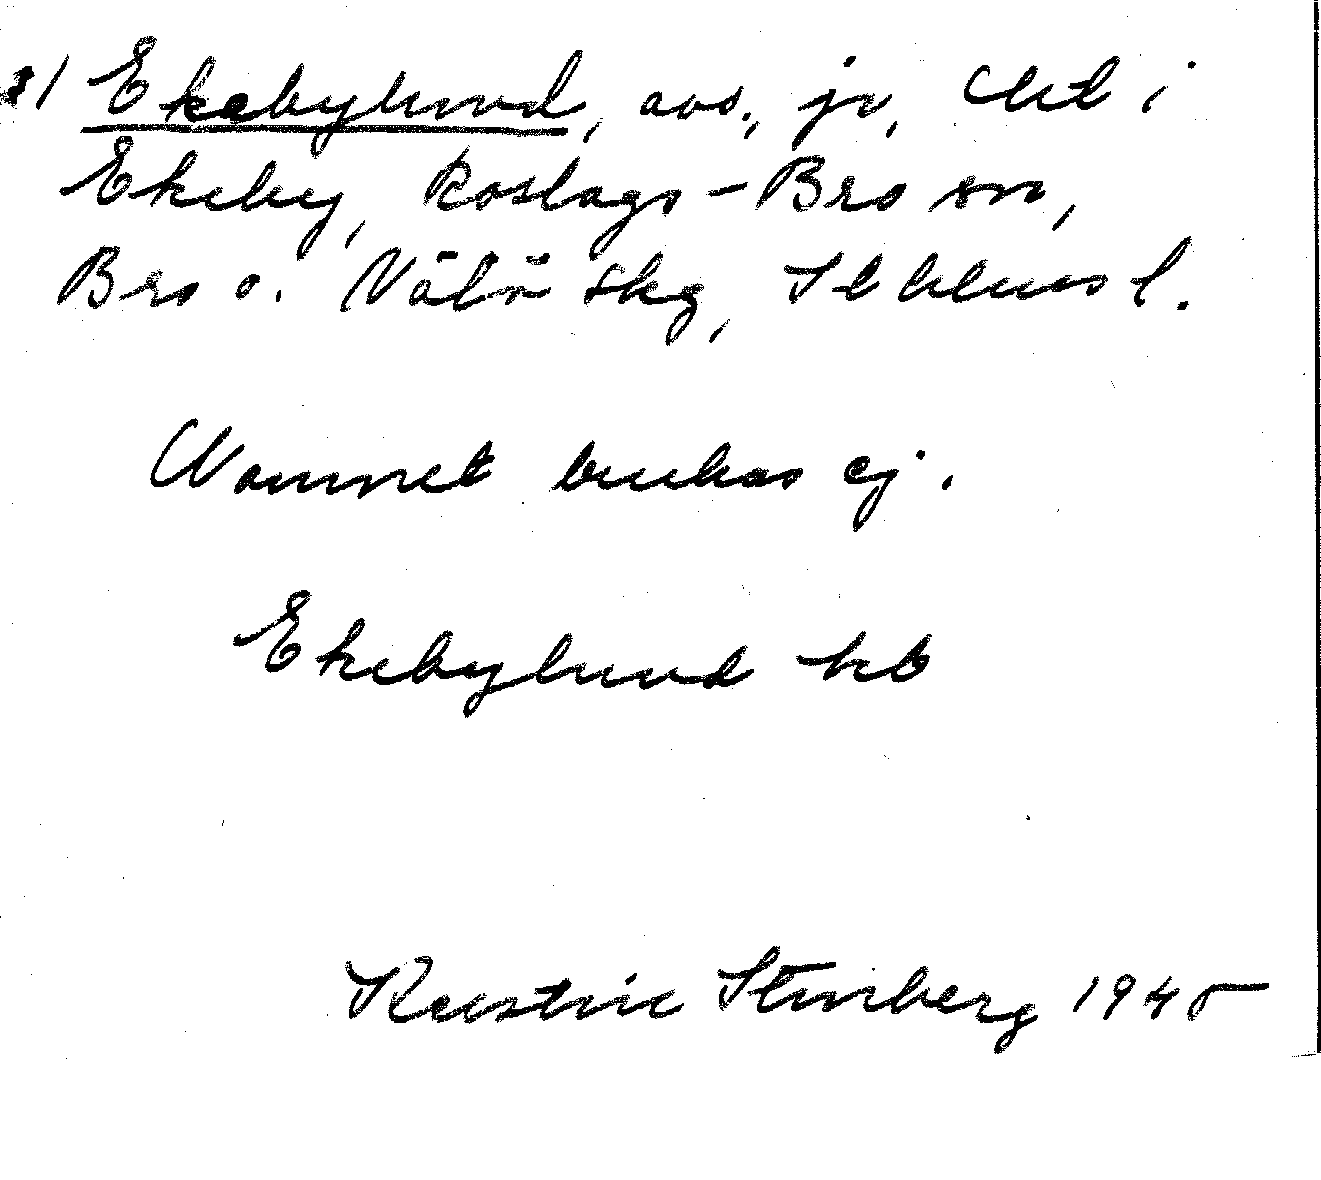 Ekebylund, avs., jr, Ekeby, Roslags-Bro sn,
Bro o. Vätö skg, Sthlms l.
Namnet brukas ej.
Ekebylund kb
Kerstin Stenberg 1945